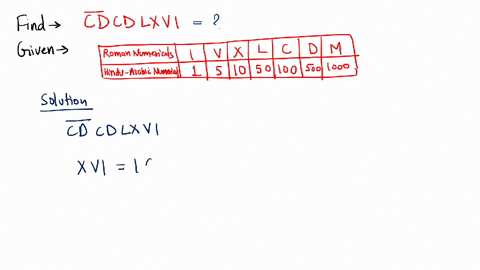 Find → C̅D̅ C D L X V I = ?
Given →
Roman Numericals | I | V | X | L | C | D | M
Hindu-Arabic Numeral | 1 | 5 | 10 | 50 | 100 | 500 | 1000
Solution
C̅D̅ C D L X V I
X V I = 1